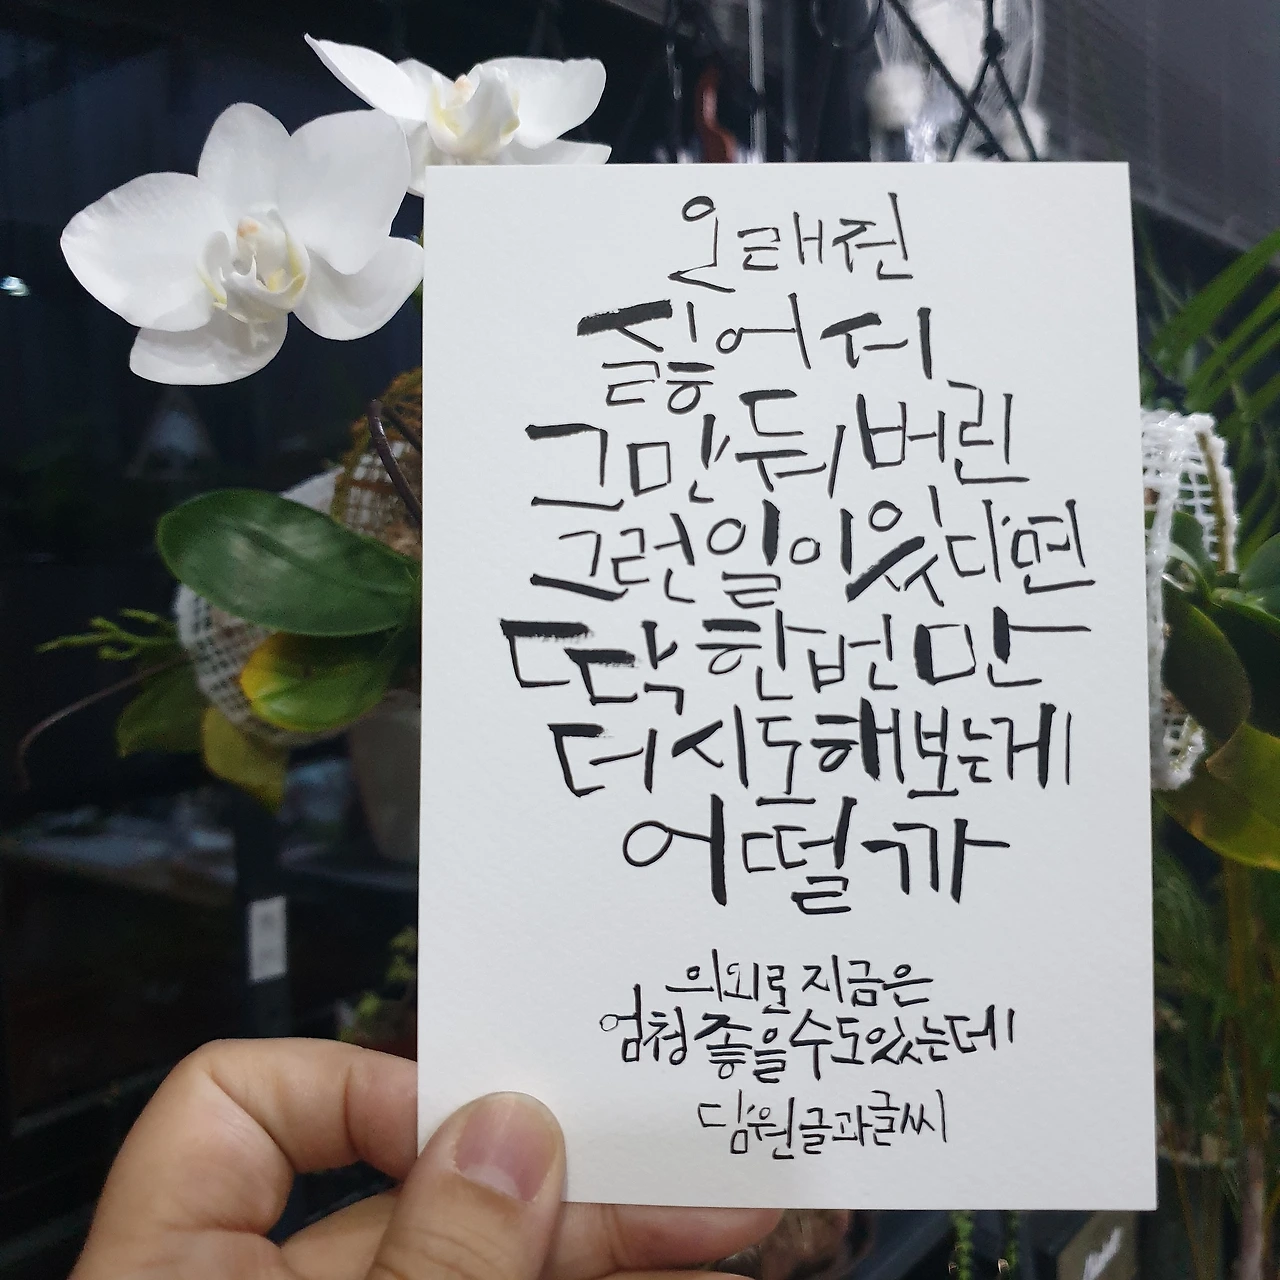 오래전
싫어서
그만둬버린
그런일이있다면
딱한번만
더시도해보는게
어떨까
의외로 지금은
엄청좋을수도있는데
담원글과글씨